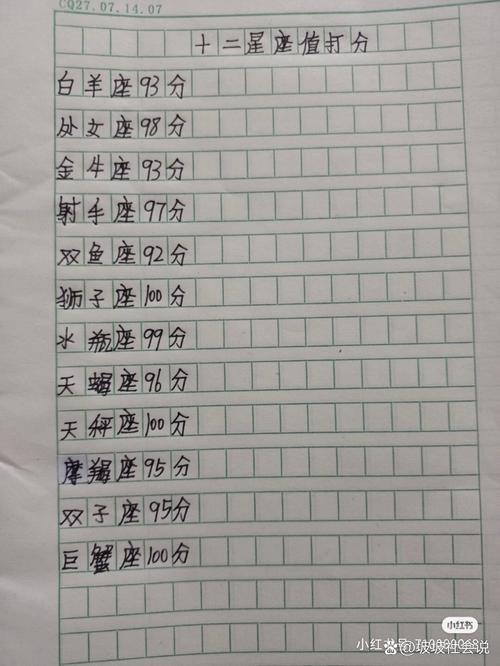 CQ27.07.14.07
十二星座值打分
白羊座93分
处女座98分
金牛座93分
射手座97分
双鱼座92分
狮子座100分
水瓶座99分
天蝎座96分
天秤座100分
摩羯座95分
双子座95分
巨蟹座100分
小红书
小红书号
@玻玻社会说